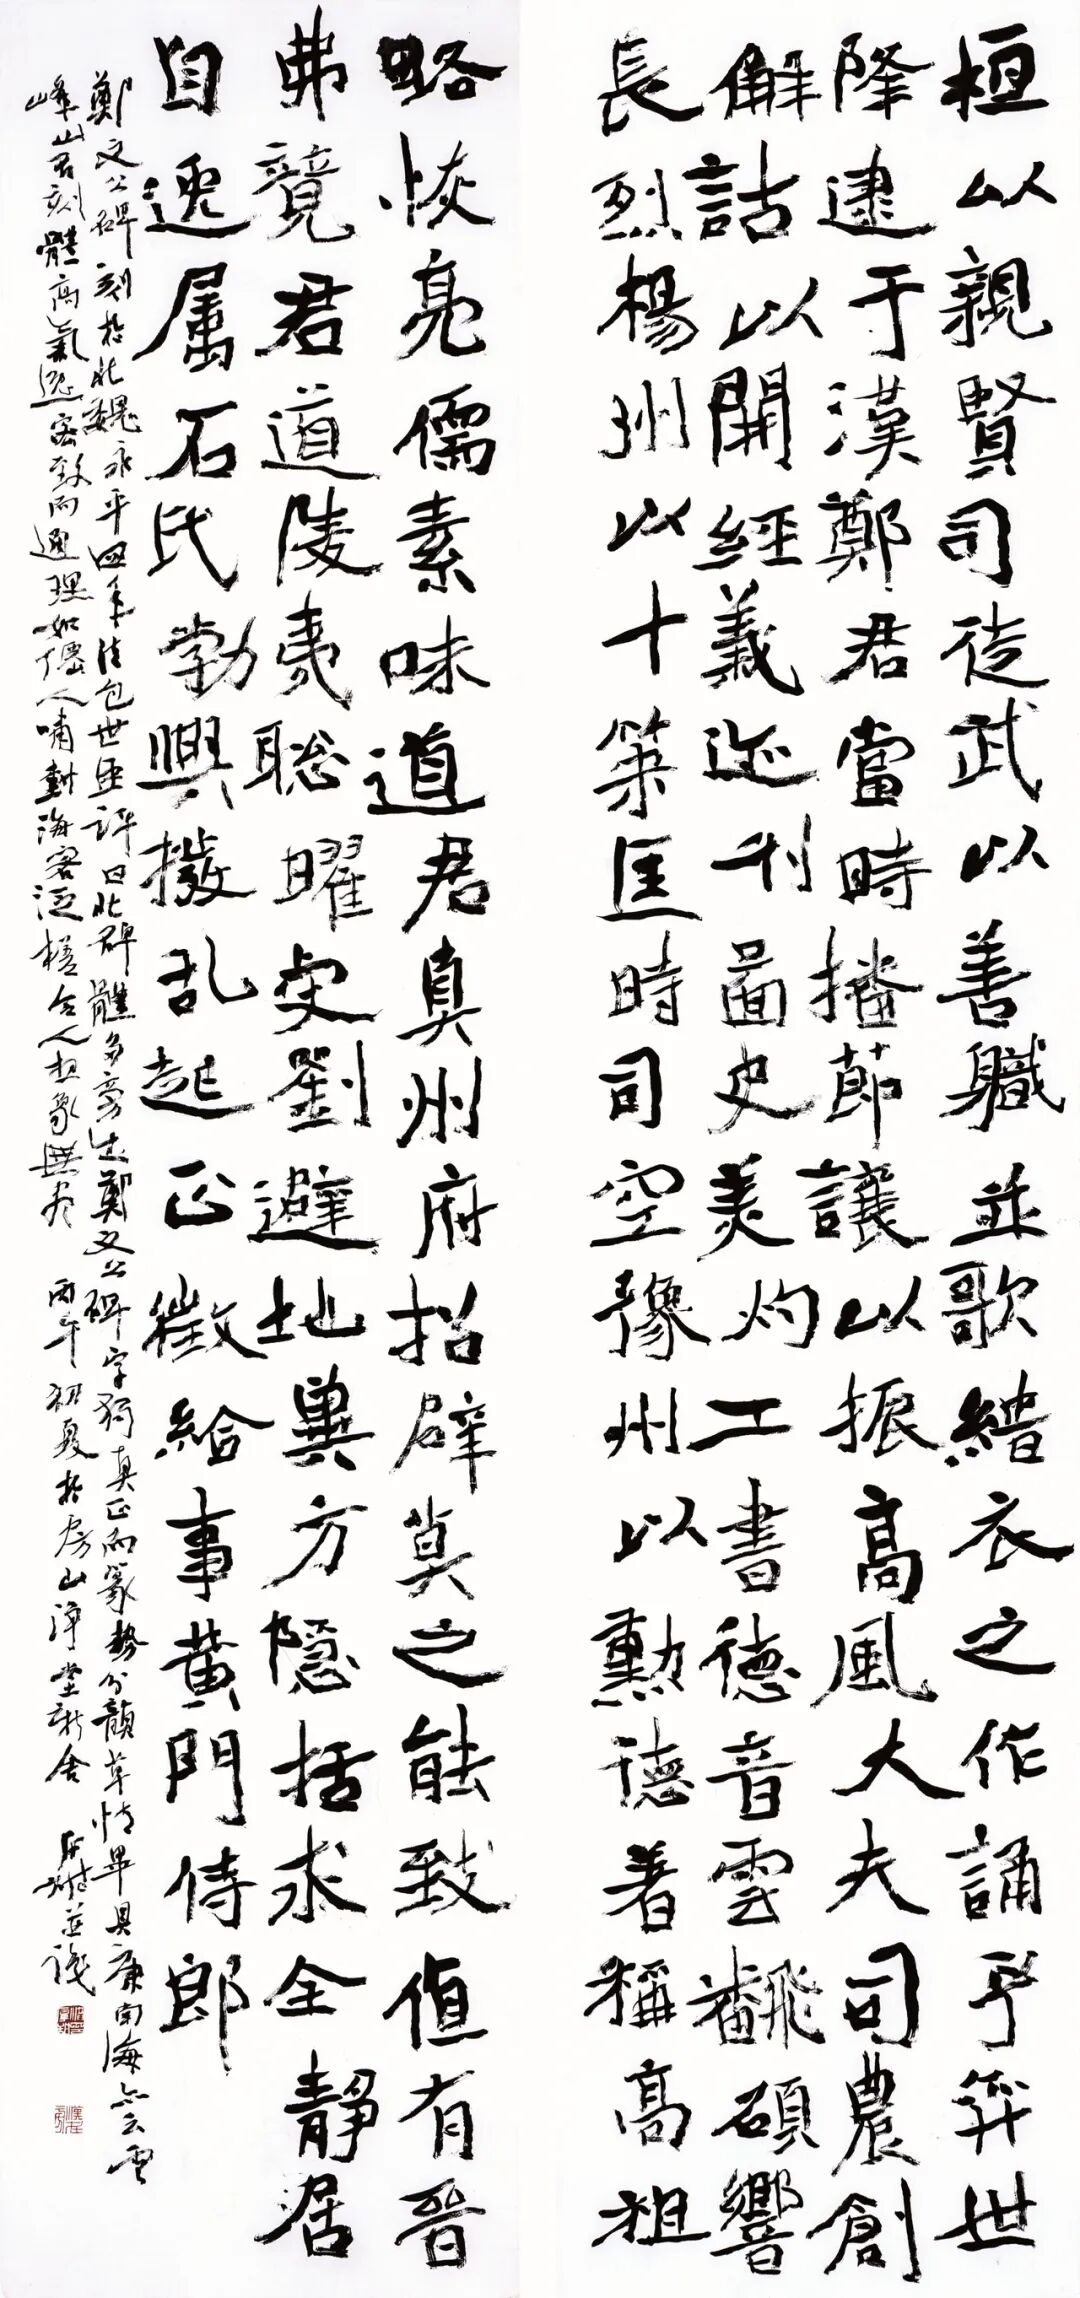 桓以親賢司徒武以善職並歌緇衣之作誦乎奕世
降逮于漢鄭君當時播節讓以振高風大夫司農創
解詁以開經義迹刋圖史美灼工書德音雲翻碩響
長烈楊州以十策匡時司空豫州以勲德著稱高祖
略恢亮儒素味道君真州府招辟莫之能致值有晉
弗竟君道陵夷聡曜虔劉避地兾方隱括求全靜居
自逸属石氏勃興撥乱起正徵給事黄門侍郎
鄭文公碑刻於北魏永平四年清包世臣評曰北碑體多旁出鄭文公碑字獨真正而篆勢分韻草情畢具康南海亦云雲
峰山石刻體高氣逸密致而通理如僊人嘯樹海客泛槎令人想象無盡 丙午初夏於房山淨堂新舍 並識